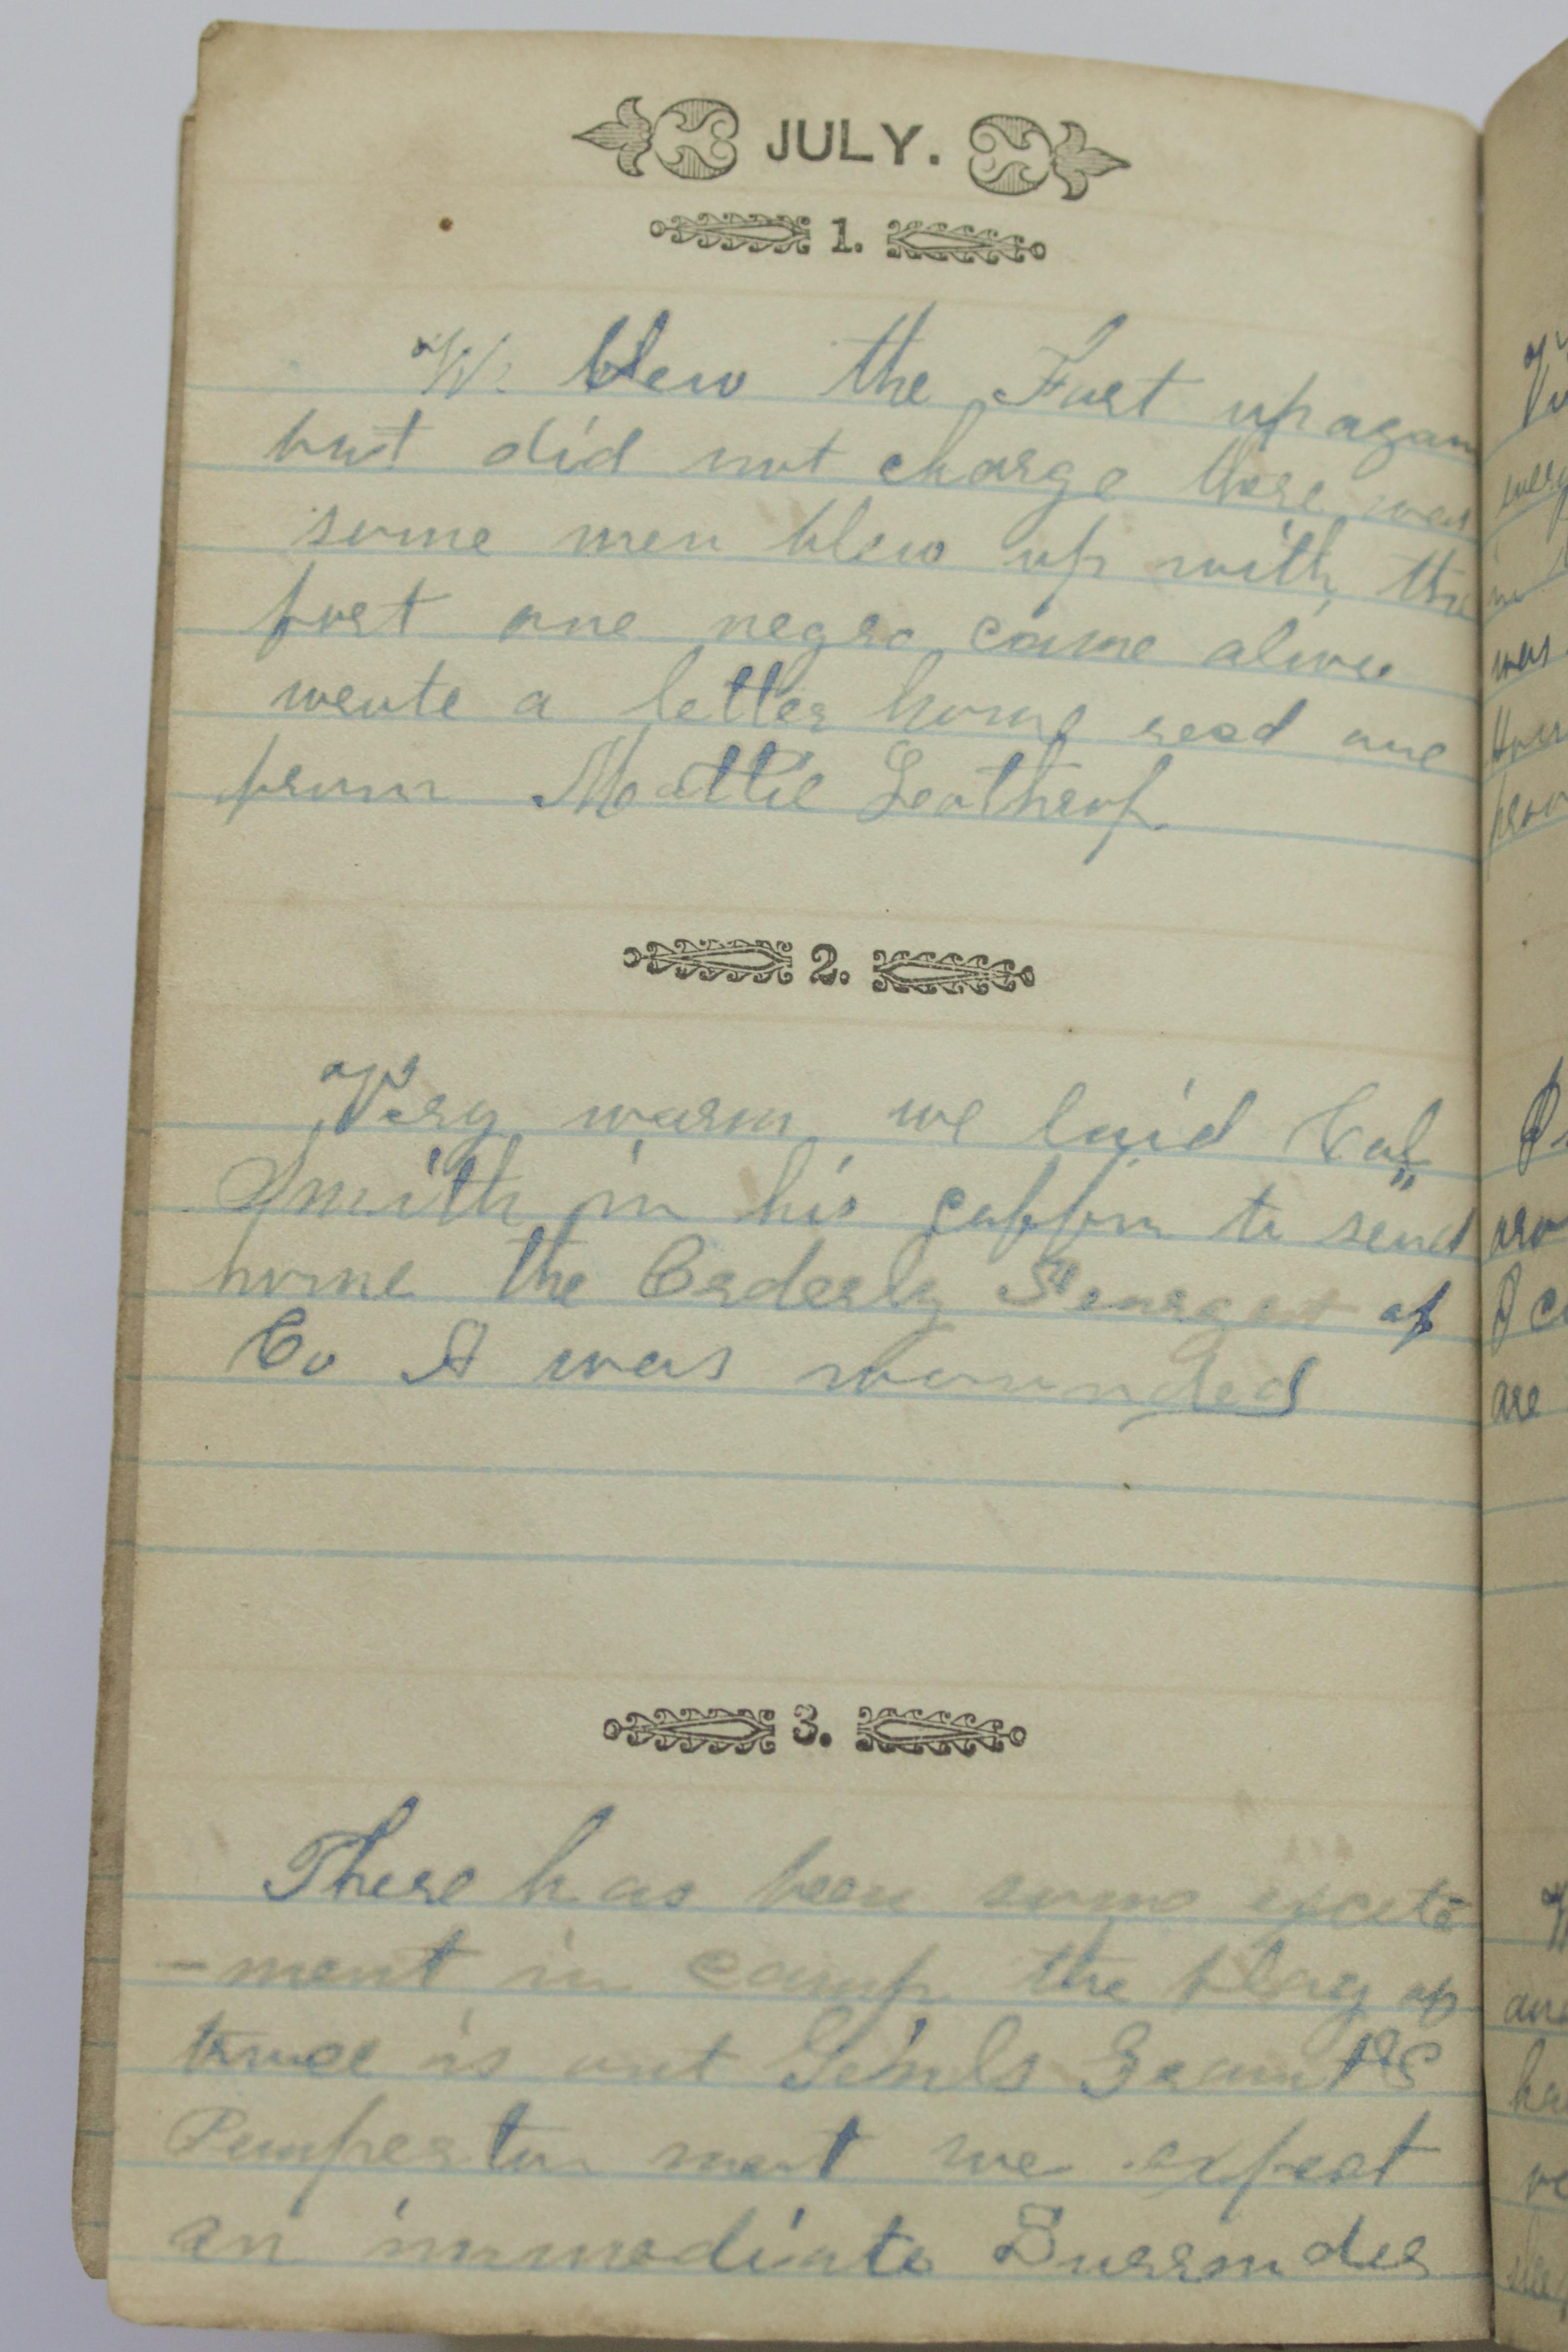 JULY.
1.
We blew the Fort up again
but did not charge there was
some men blew up with the
fort one negro came alive
wrote a letter home recd one
from Mattie
2.
Very warm we laid Col
Smith in his coffin to send
home the Orderly Seargent of
Co A was wounded
3.
There has been some excite
-ment in camp the flag of
truce is out Genls Grant &
Pemperton meet we expect
an immediate Surrender